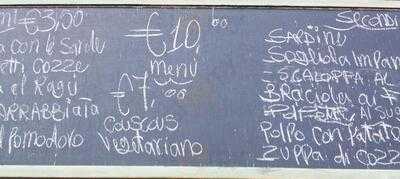 mi €3,00
a con le Sarde
etti cozze
a el Ragù
ARRABBIATA
l pomodoro
€10,00
menù
€7,00
couscous
Vegetariano
Secondi
SARDINE
Sogliola Impan
SCALOPPA AL
Braciola ai F
AL SUG
Polpo con Patate
Zuppa di cozz